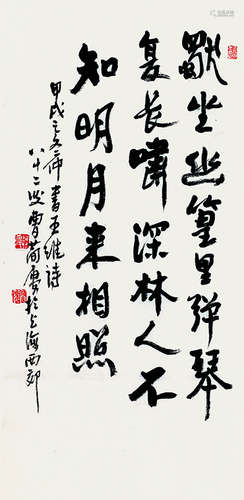 獨坐幽篁里弹琴
复长嘯深林人不
知明月来相照
甲戌之冬書王維诗
八十二叟曹简楼於上海西郊